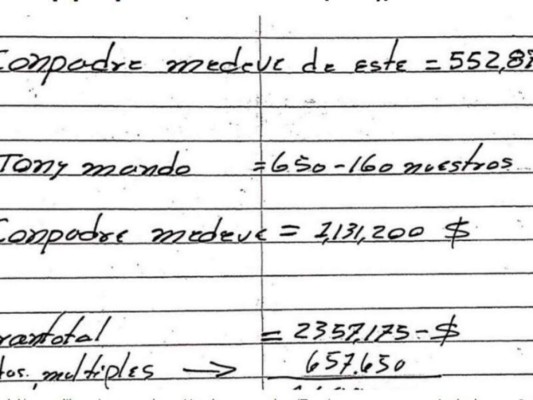 Conpadre medeve de este = 552,87
Tony mando = 650-160 nuestros
Conpadre medeve = 1,131,200 $
rantotal = 2357,175-$
tos. multiples → 657.650